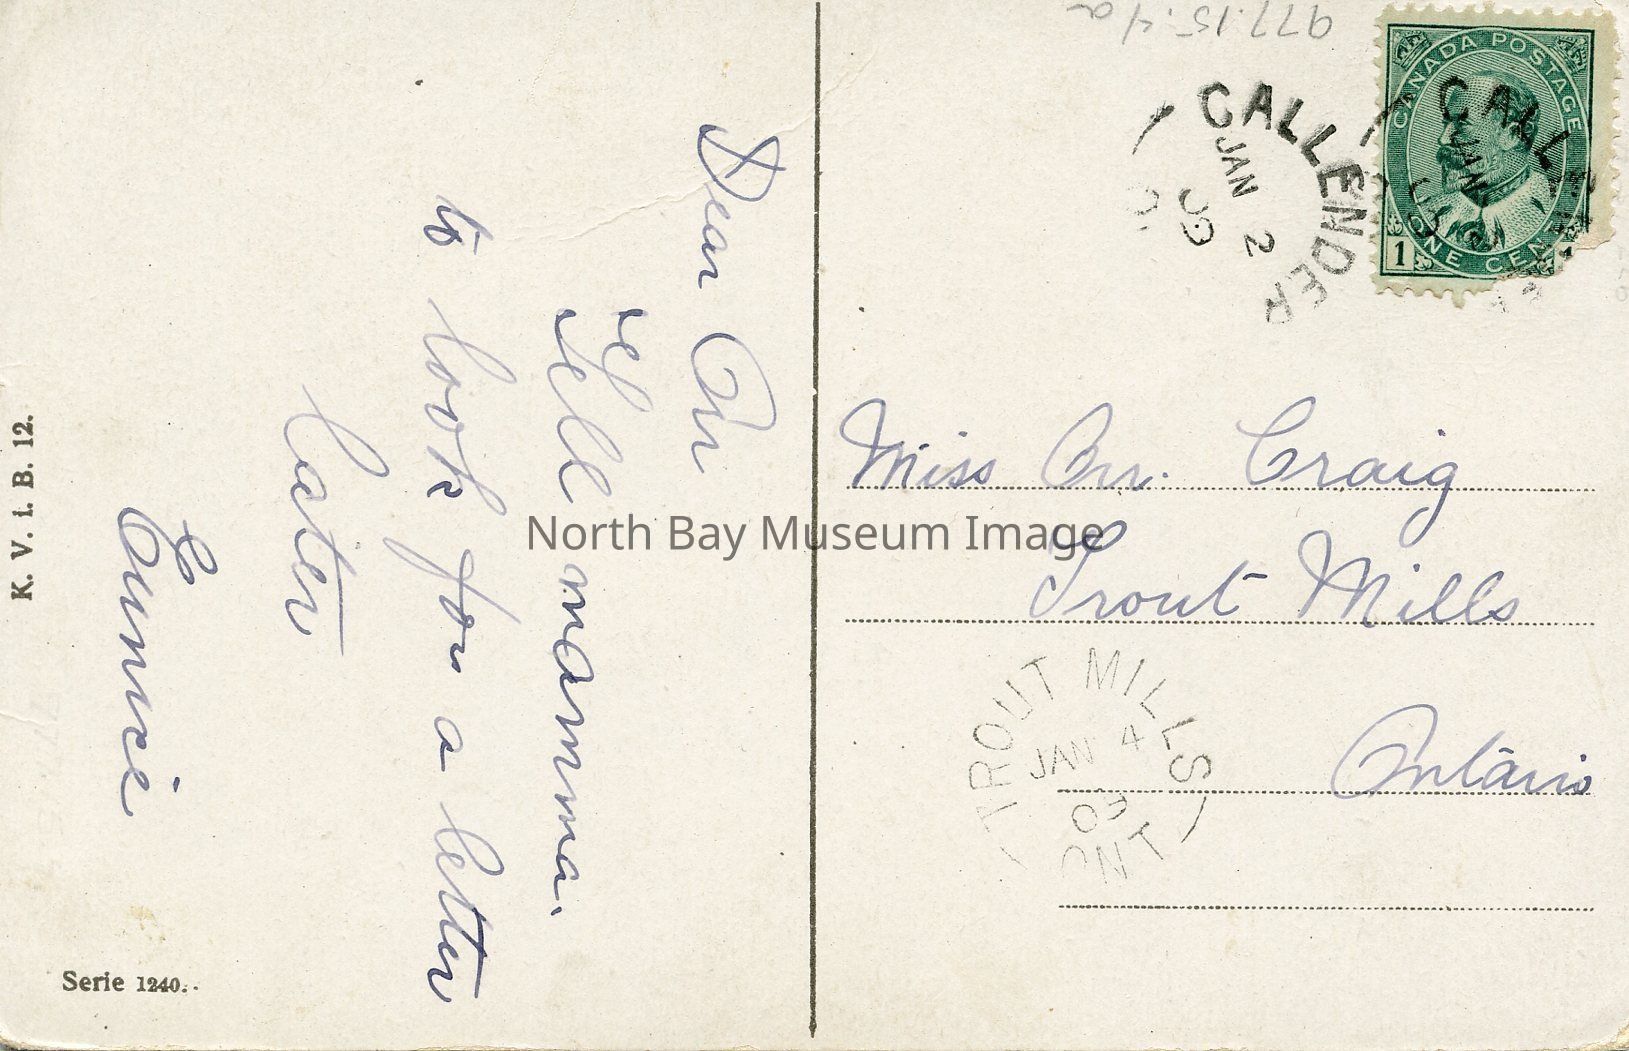 977.15.4a
CANADA POSTAGE
1
ONE CENT
CALLENDER
JAN 2
09
Dear Orr
Tell mamma.
to look for a letter
later
Eunice
Miss Orr. Craig
Trout Mills
Ontario
TROUT MILLS
JAN 4
09
ONT
North Bay Museum Image
K. V. i. B. 12.
Serie 1240.